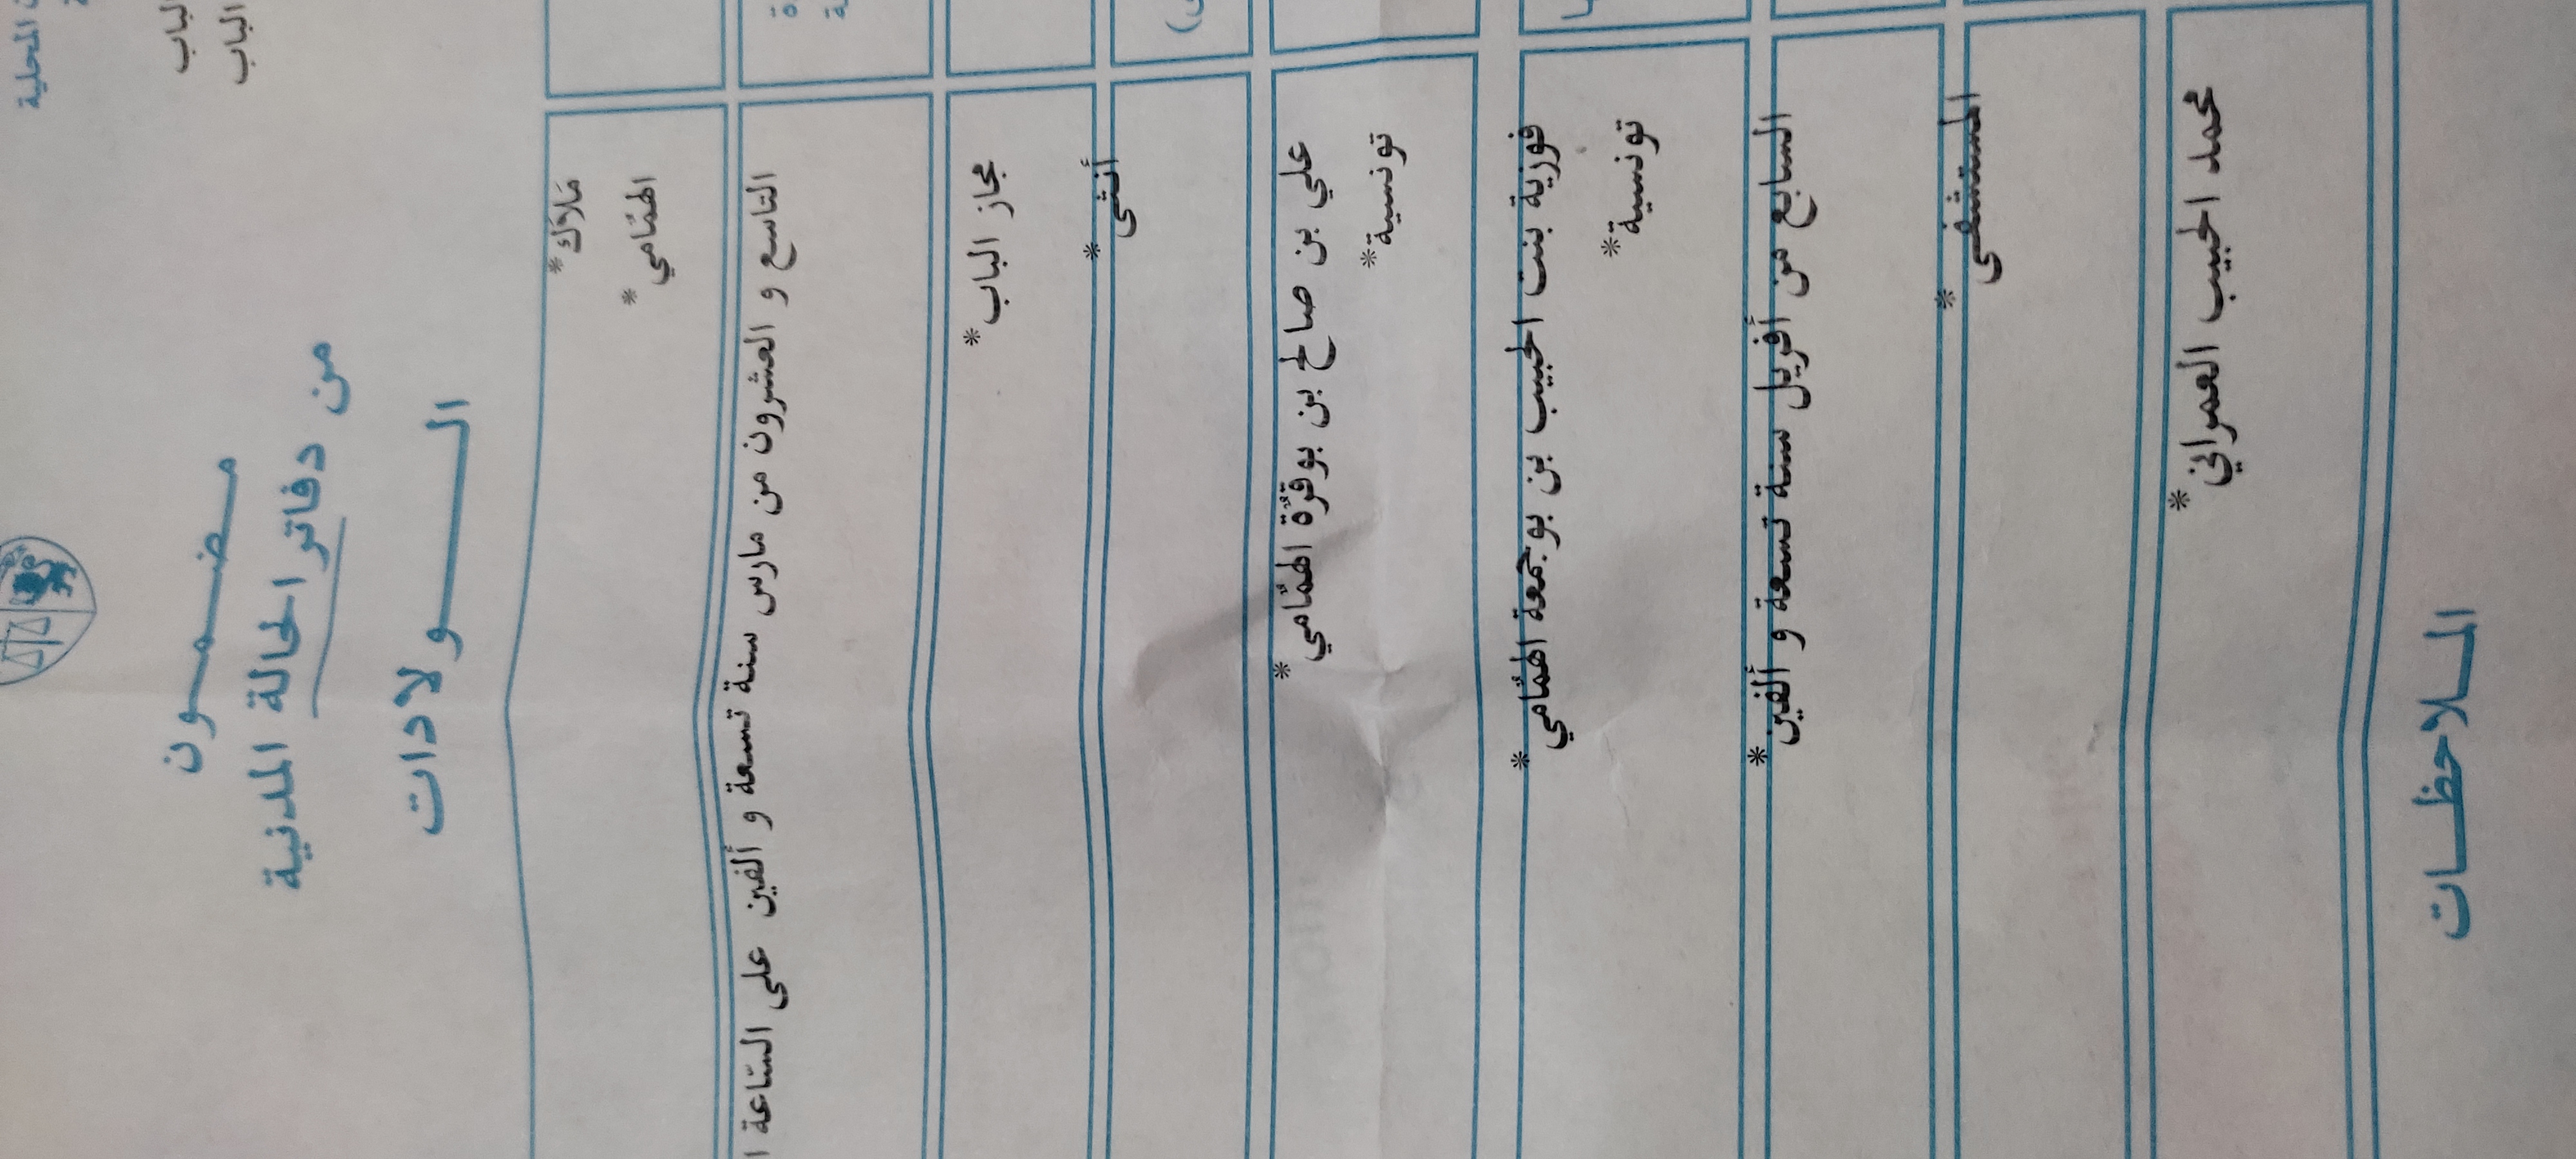 المحلية
الباب
الباب
مضمون
من دفاتر الحالة المدنية
الولادات
مَلَاك*
الهمّامي*
التاسع و العشرون من مارس سنة تسعة و ألفين على السّاعة
مجاز الباب*
أنثى*
علي بن صالح بن بوقرّة الهمّامي*
تونسية*
فوزية بنت الحبيب بن بوجمعة الهمّامي*
تونسية*
السابع من أفريل سنة تسعة و ألفين*
المستشفى*
محمد الحبيب العمراني*
الملاحظات